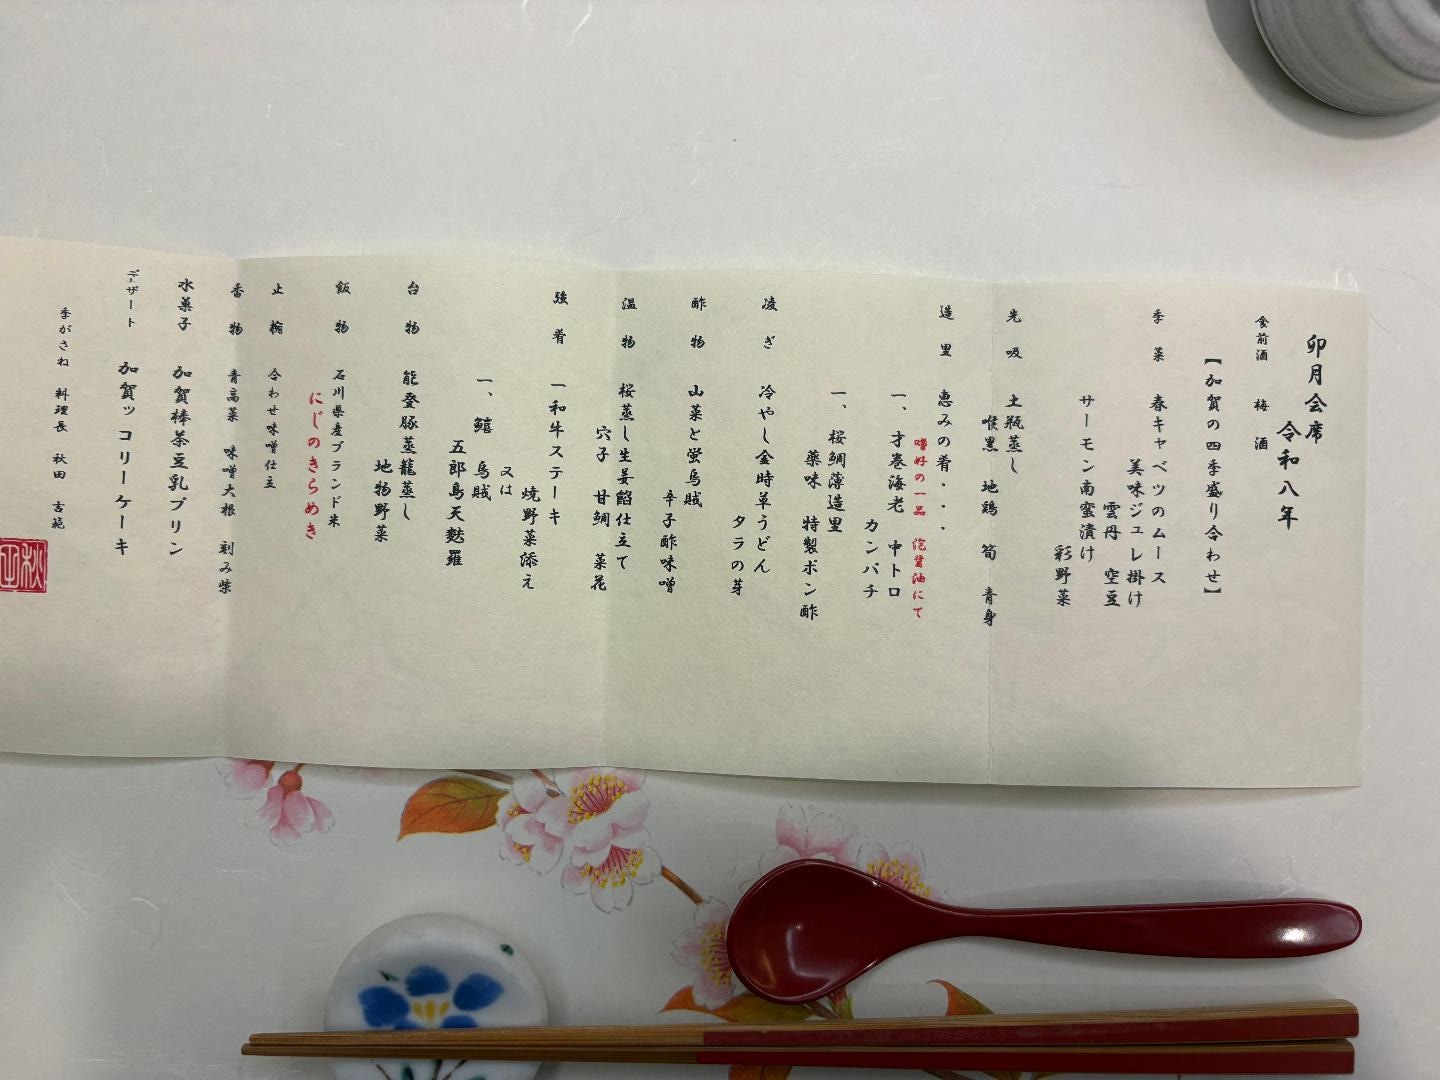 卯月会席
令和八年
食前酒 梅酒
【加賀の四季盛り合わせ】
季菜 春キャベツのムース
美味ジュレ掛け
雲丹 空豆
サーモン南蛮漬け
彩野菜
先吸 土瓶蒸し
喉黒 地鶏 筍 青身
造里 恵みの肴・・・
嗜好の一品 泡醤油にて
一、才巻海老 中トロ
カンパチ
一、桜鯛薄造里
薬味 特製ポン酢
凌ぎ 冷やし金時草うどん
タラの芽
酢物 山菜と蛍烏賊
辛子酢味噌
温物 桜蒸し生姜餡仕立て
穴子 甘鯛 菜花
強肴 一和牛ステーキ
焼野菜添え
又は
一、鱚 烏賊
五郎島天麩羅
台物 能登豚蒸籠蒸し
地物野菜
飯物 石川県産ブランド米
にじのきらめき
止椀 合わせ味噌仕立
香物 青高菜 味噌大根 刻み柴
水菓子 加賀棒茶豆乳プリン
デザート 加賀ッコリーケーキ
季がさね 料理長 秋田 吉範
秋田